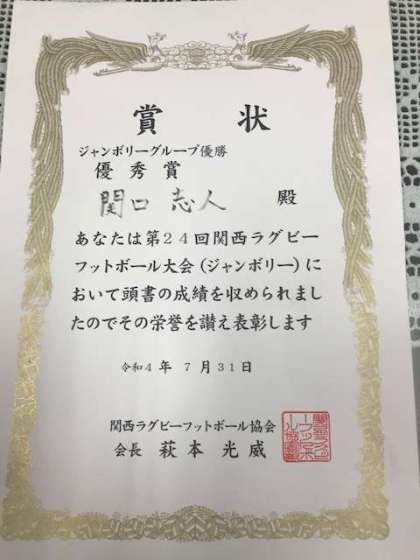 賞状
ジャンボリーグループ優勝
優秀賞
関口志人 殿
あなたは第24回関西ラグビー
フットボール大会(ジャンボリー)に
おいて頭書の成績を収められまし
たのでその栄誉を讃え表彰します
令和4年 7月31日
関西ラグビーフットボール協会
会長 萩本光威